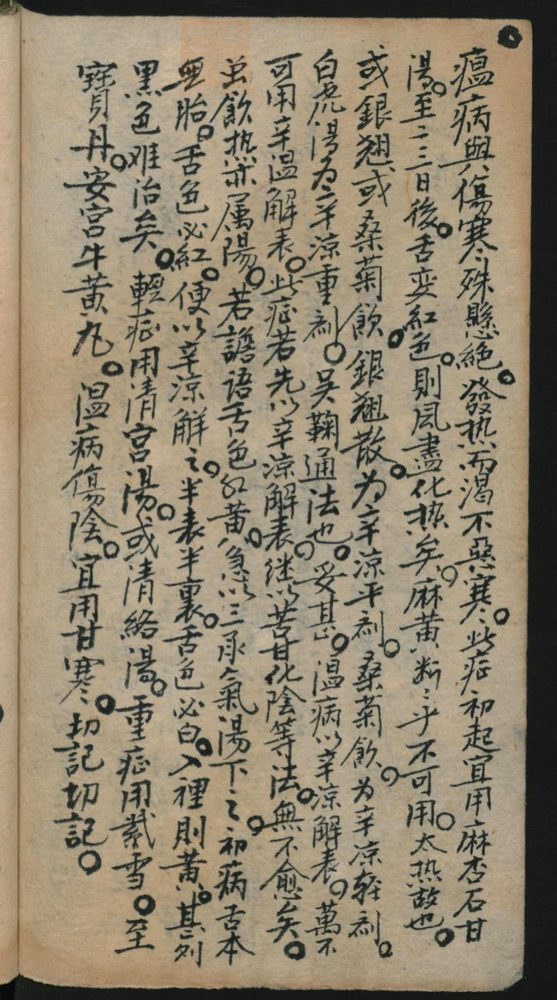 瘟病與傷寒殊懸絕。發热而渴不惡寒。此症初起宜用麻杏石甘
湯。至二三日後。舌变红色。則風盡化热矣。麻黄断々乎不可用。太热故也。
或銀翹或桑菊飲。銀翹散。为辛凉平剂。桑菊飲。为辛凉轻剂。
白虎湯为辛凉重剂。吴鞠通法也。妥甚。温病以辛凉解表。萬不
可用辛温解表。此症若先以辛凉解表。继以苦甘化陰等法。無不愈矣。
虽飲热亦属陽。若譫语舌色红黄。急以三承氣湯下之。初病舌本
無胎。舌色必红。便以辛凉解之。半表半裏。舌色必白。入裡則黄。甚則
黑色难治矣。輕症用清宫湯。或清絡湯。重症用紫雪。至
寶丹。安宫牛黄丸。温病傷陰。宜用甘寒。切記切記。